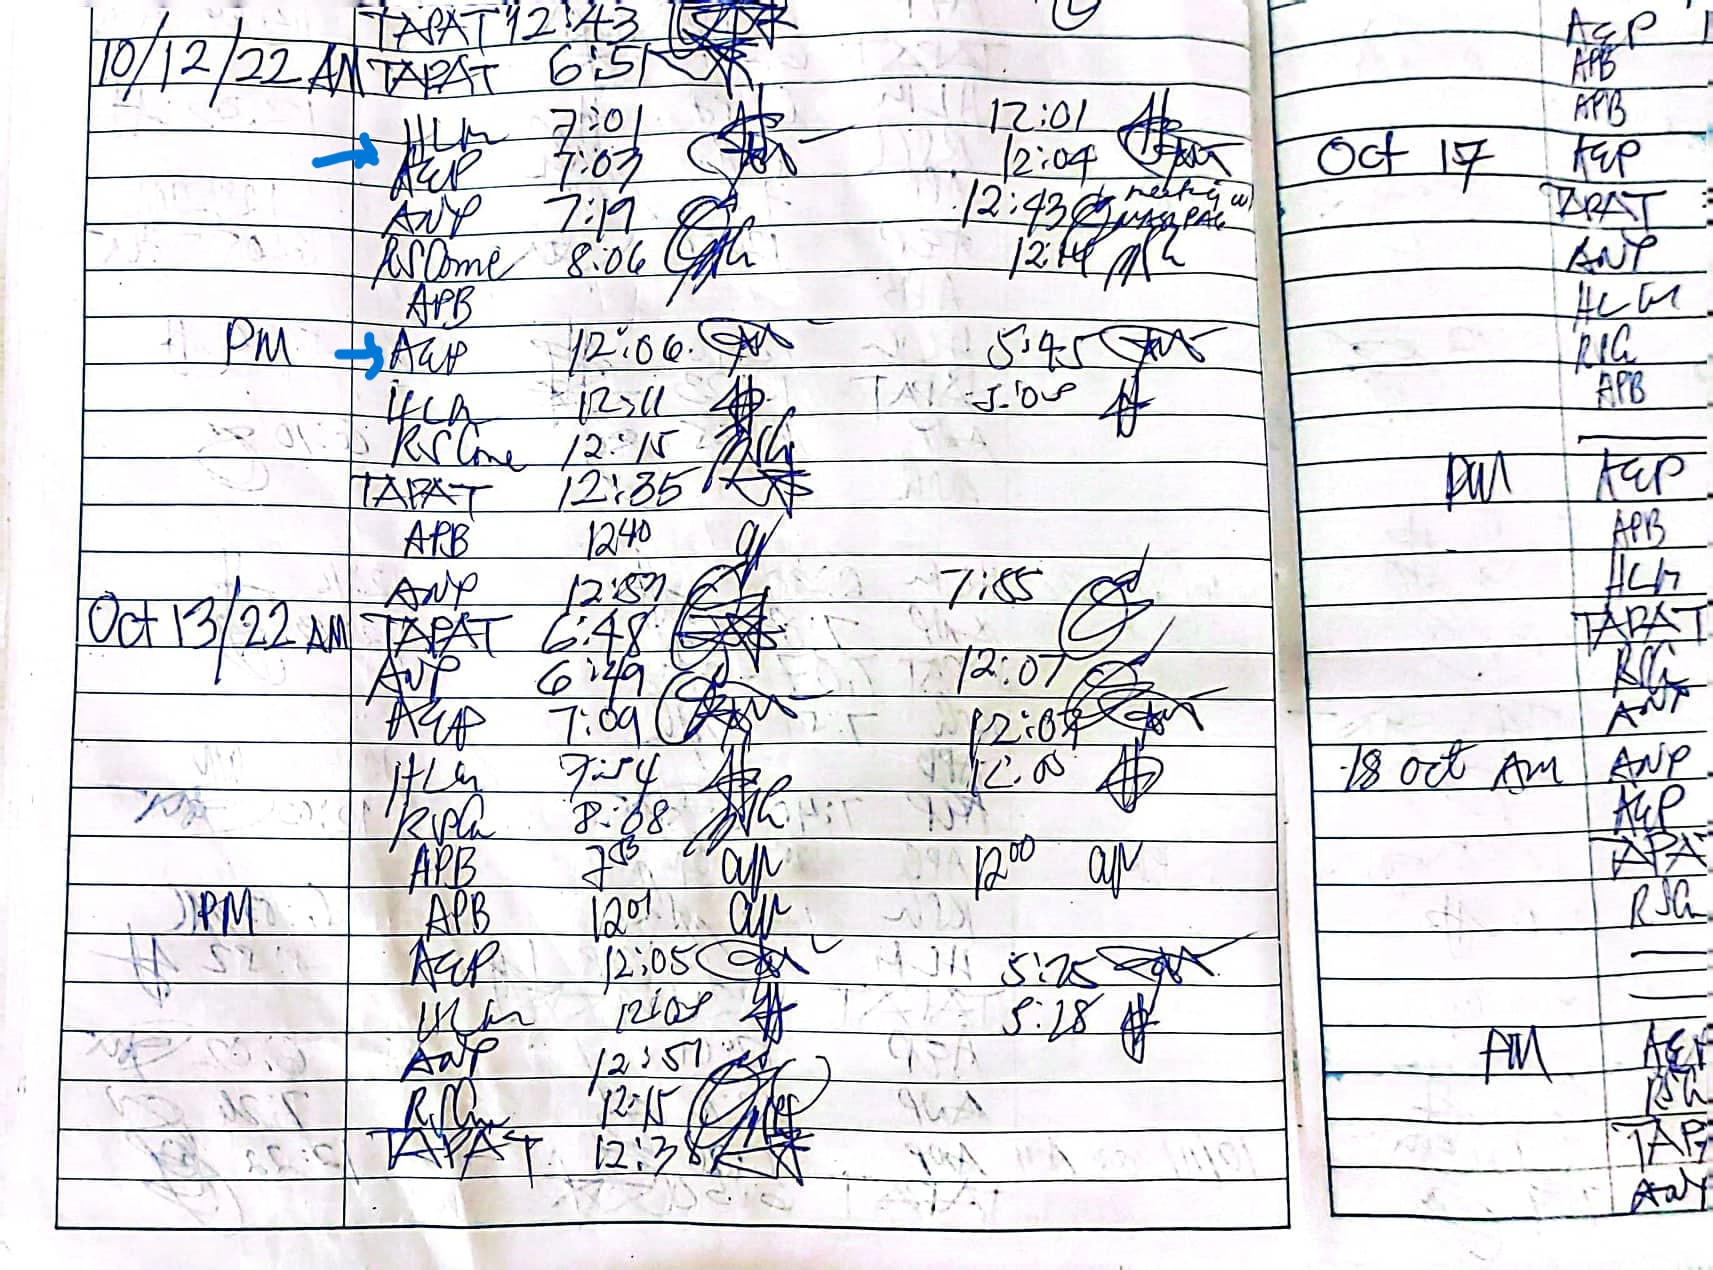 TAPAT 12:43
10/12/22 AM TAPAT 6:51
HLM 7:01 12:01
AEP 7:03 12:04
ANP 7:19 12:43 meeting w/
RSCome 8:06 12:14
APB
PM AEP 12:06 5:45
HLM 12:11 5:08
RSCome 12:15
TAPAT 12:35
APB 1240
ANP 12:53 7:55
Oct 13/22 AM TAPAT 6:48
ANP 6:49 12:07
AEP 7:09 12:07
HLM 7:54 12:00
RSG 8:08
APB 12⁰⁰
PM APB 12⁰¹
AEP 12:05 5:25
HLM 12:08 5:28
ANP 12:51
RSG 12:15
TAPAT 12:38
AEP
APB
APB
Oct 17 AEP
TAPAT
ANP
HLM
RSG
APB
PM AEP
APB
HLM
TAPAT
RSG
ANP
18 Oct AM ANP
AEP
TAPA
RSG
PM AEP
RSG
TAP
ANP